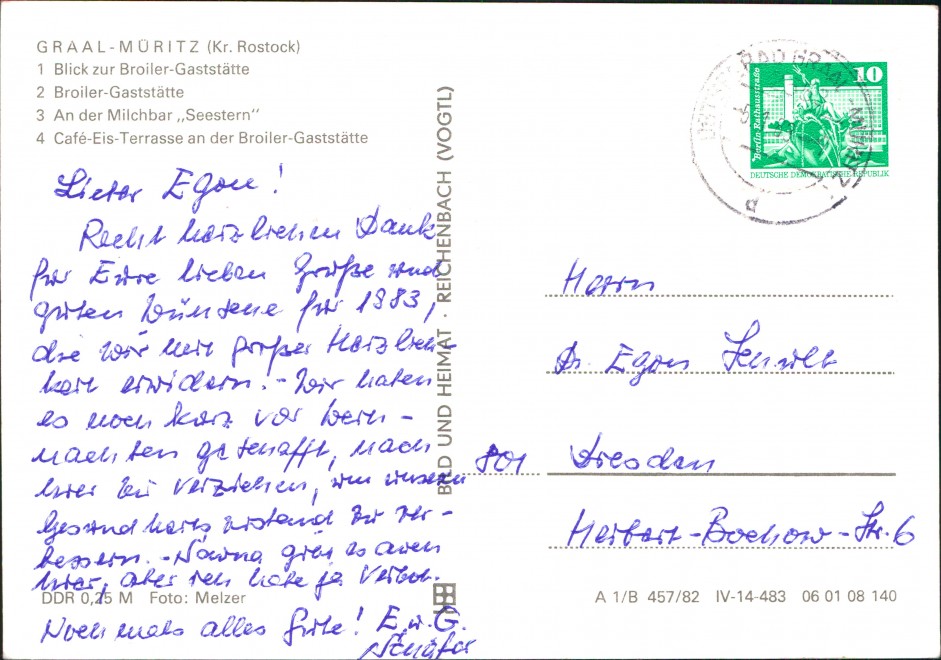 GRAAL-MÜRITZ (Kr. Rostock)
1 Blick zur Broiler-Gaststätte
2 Broiler-Gaststätte
3 An der Milchbar „Seestern“
4 Café-Eis-Terrasse an der Broiler-Gaststätte
Lieber Egon!
Recht herzlichen Dank
für Eure lieben Grüße und
guten Wünsche für 1983,
die wir mit großer Herzlich-
keit erwidern. - Wir haben
es noch kurz vor Weih-
nachten geschafft, nach
hier zu verziehen, um unseren
Gesundheitszustand zu ver-
bessern. - gibt es auch
hier, aber ich habe ja Verbot.
Nochmals alles Gute! E. u. G.
Schäfer
DDR 0,25 M Foto: Melzer
BILD UND HEIMAT · REICHENBACH (VOGTL)
10
Berlin, Rathausstraße
DEUTSCHE DEMOKRATISCHE REPUBLIK
Herrn
Dr. Egon Schulz
801 Dresden
Herbert-Bochow-Str. 6
A 1/B 457/82 IV-14-483 06 01 08 140